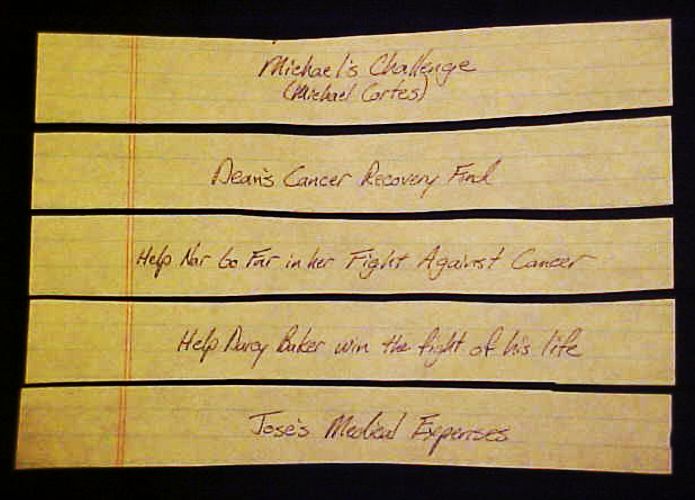 Michael's Challenge
(Michael Cortes)
Dean's Cancer Recovery Fund
Help Nar Go Far in her Fight Against Cancer
Help Darcy Baker win the fight of his life
Jose's Medical Expenses